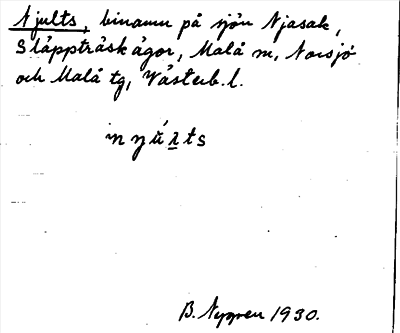 Njults, binamn på sjön Njasak,
Släppträskågor, Malå sn, Norsjö
och Malå tg, Västerb. l.
B. Nygren 1930.